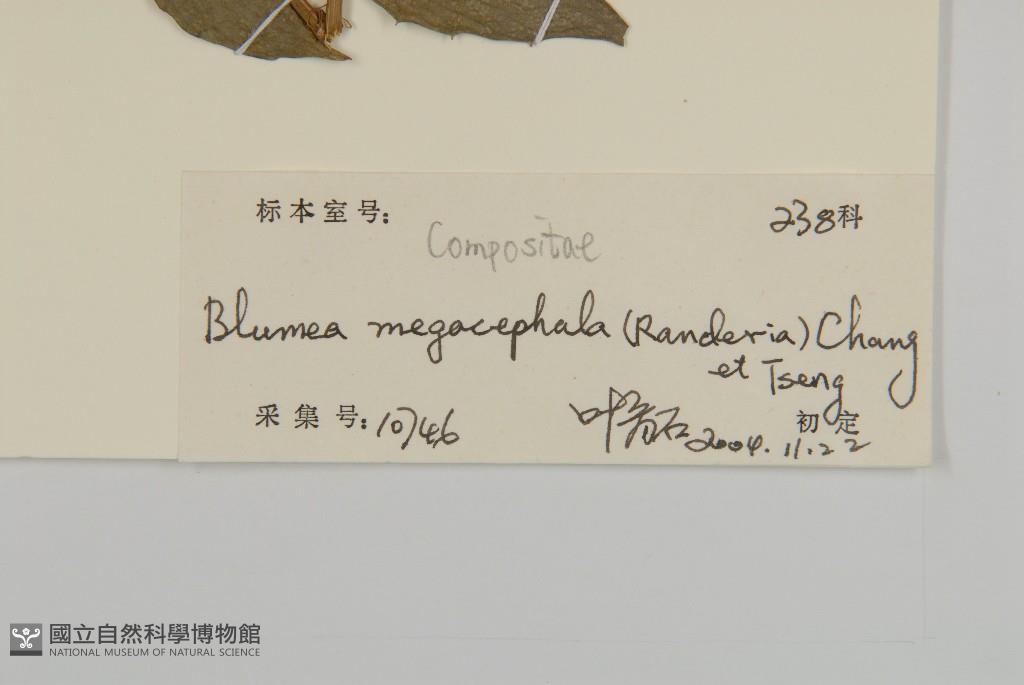 标本室号: 238科
Compositae
Blumea megacephala (Randeria) Chang
et Tseng
采集号: 10746 叶育石 初定
2004.11.22
國立自然科學博物館
NATIONAL MUSEUM OF NATURAL SCIENCE